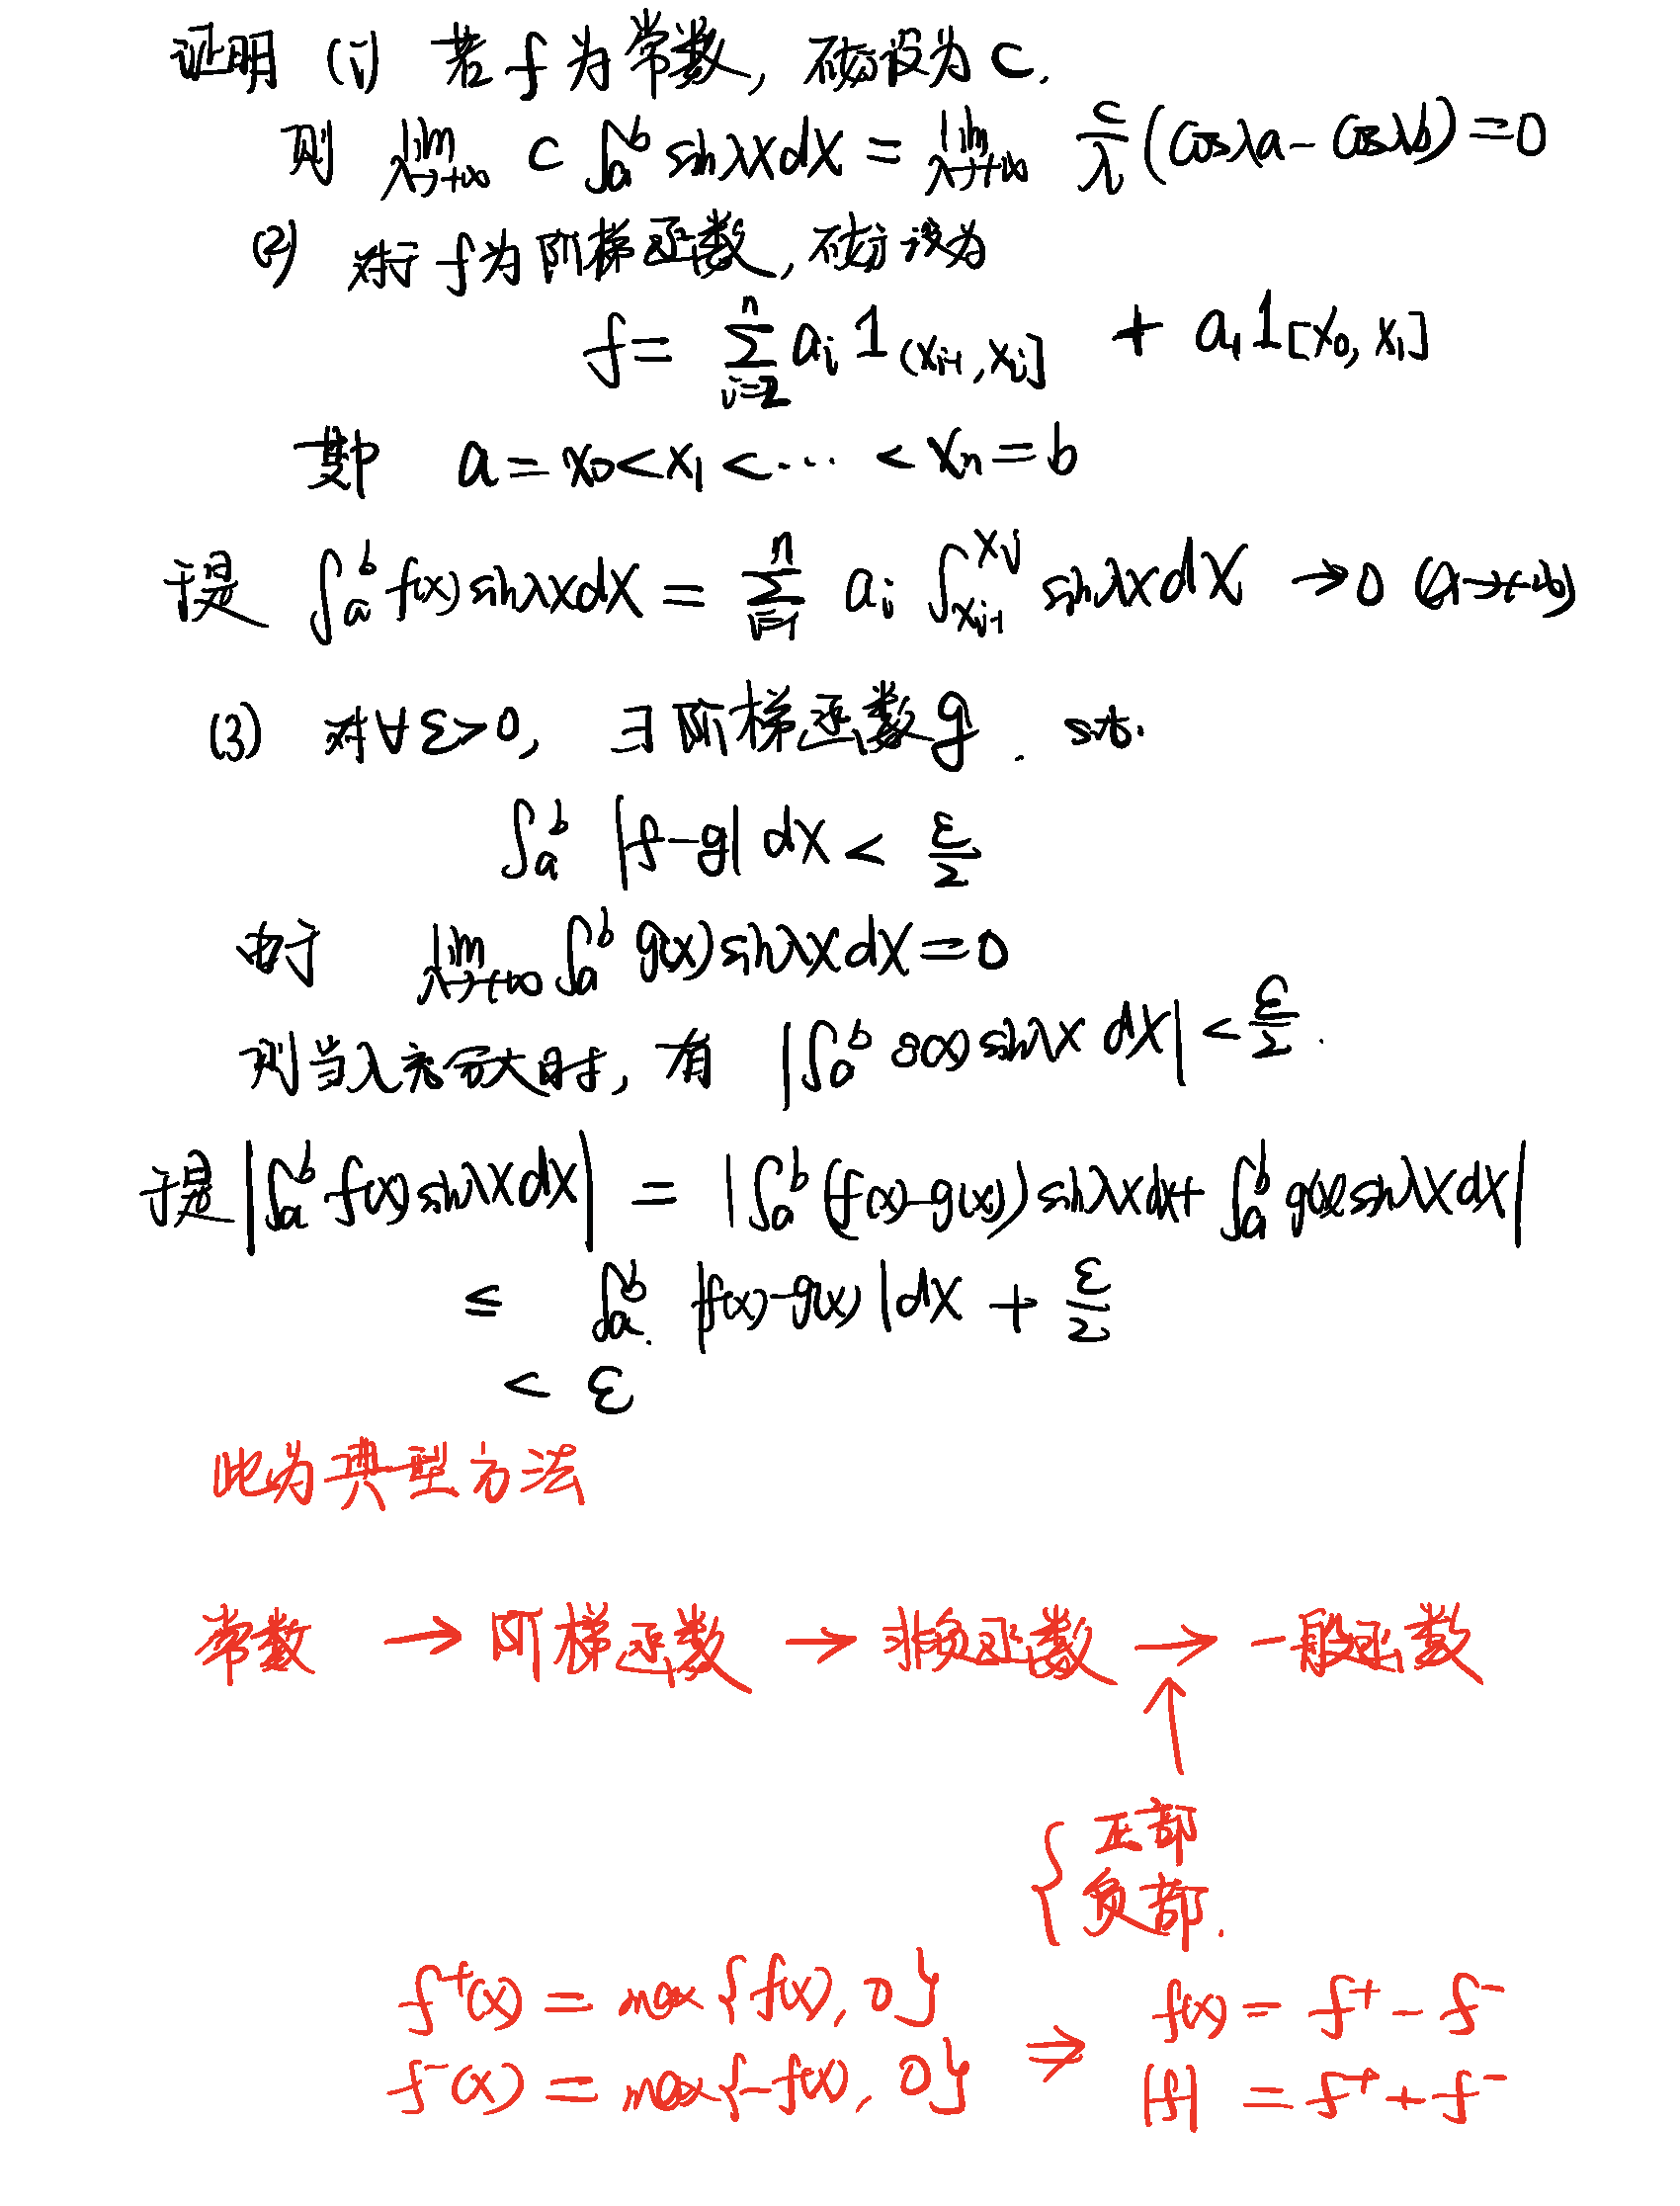 证明 (1) 若 f 为常数, 不妨设为 C.
则 lim_{λ→+∞} C ∫_a^b sinλx dx = lim_{λ→+∞} C/λ (cosλa - cosλb) = 0
(2) 对于 f 为阶梯函数, 不妨设为
f = ∑_{i=2}^n a_i 1_{(x_{i-1}, x_i]} + a_1 1_{[x_0, x_1]}
其中 a = x_0 < x_1 < ⋯ < x_n = b
于是 ∫_a^b f(x) sinλx dx = ∑_{i=1}^n a_i ∫_{x_{i-1}}^{x_i} sinλx dx → 0 (λ→+∞)
(3) 对∀ε>0, ∃阶梯函数 g. s.t.
∫_a^b |f-g| dx < ε/2
由于 lim_{λ→+∞} ∫_a^b g(x) sinλx dx = 0
则当λ充分大时, 有 |∫_a^b g(x) sinλx dx| < ε/2.
于是 |∫_a^b f(x) sinλx dx| = |∫_a^b (f(x)-g(x)) sinλx dx + ∫_a^b g(x) sinλx dx|
≤ ∫_a^b |f(x)-g(x)| dx + ε/2
< ε
此为典型方法
常数 → 阶梯函数 → 非负函数 → 一般函数
↑
{ 正部
负部.
f^+(x) = max{f(x), 0} ⇒ f(x) = f^+ - f^-
f^-(x) = max{-f(x), 0} |f| = f^+ + f^-